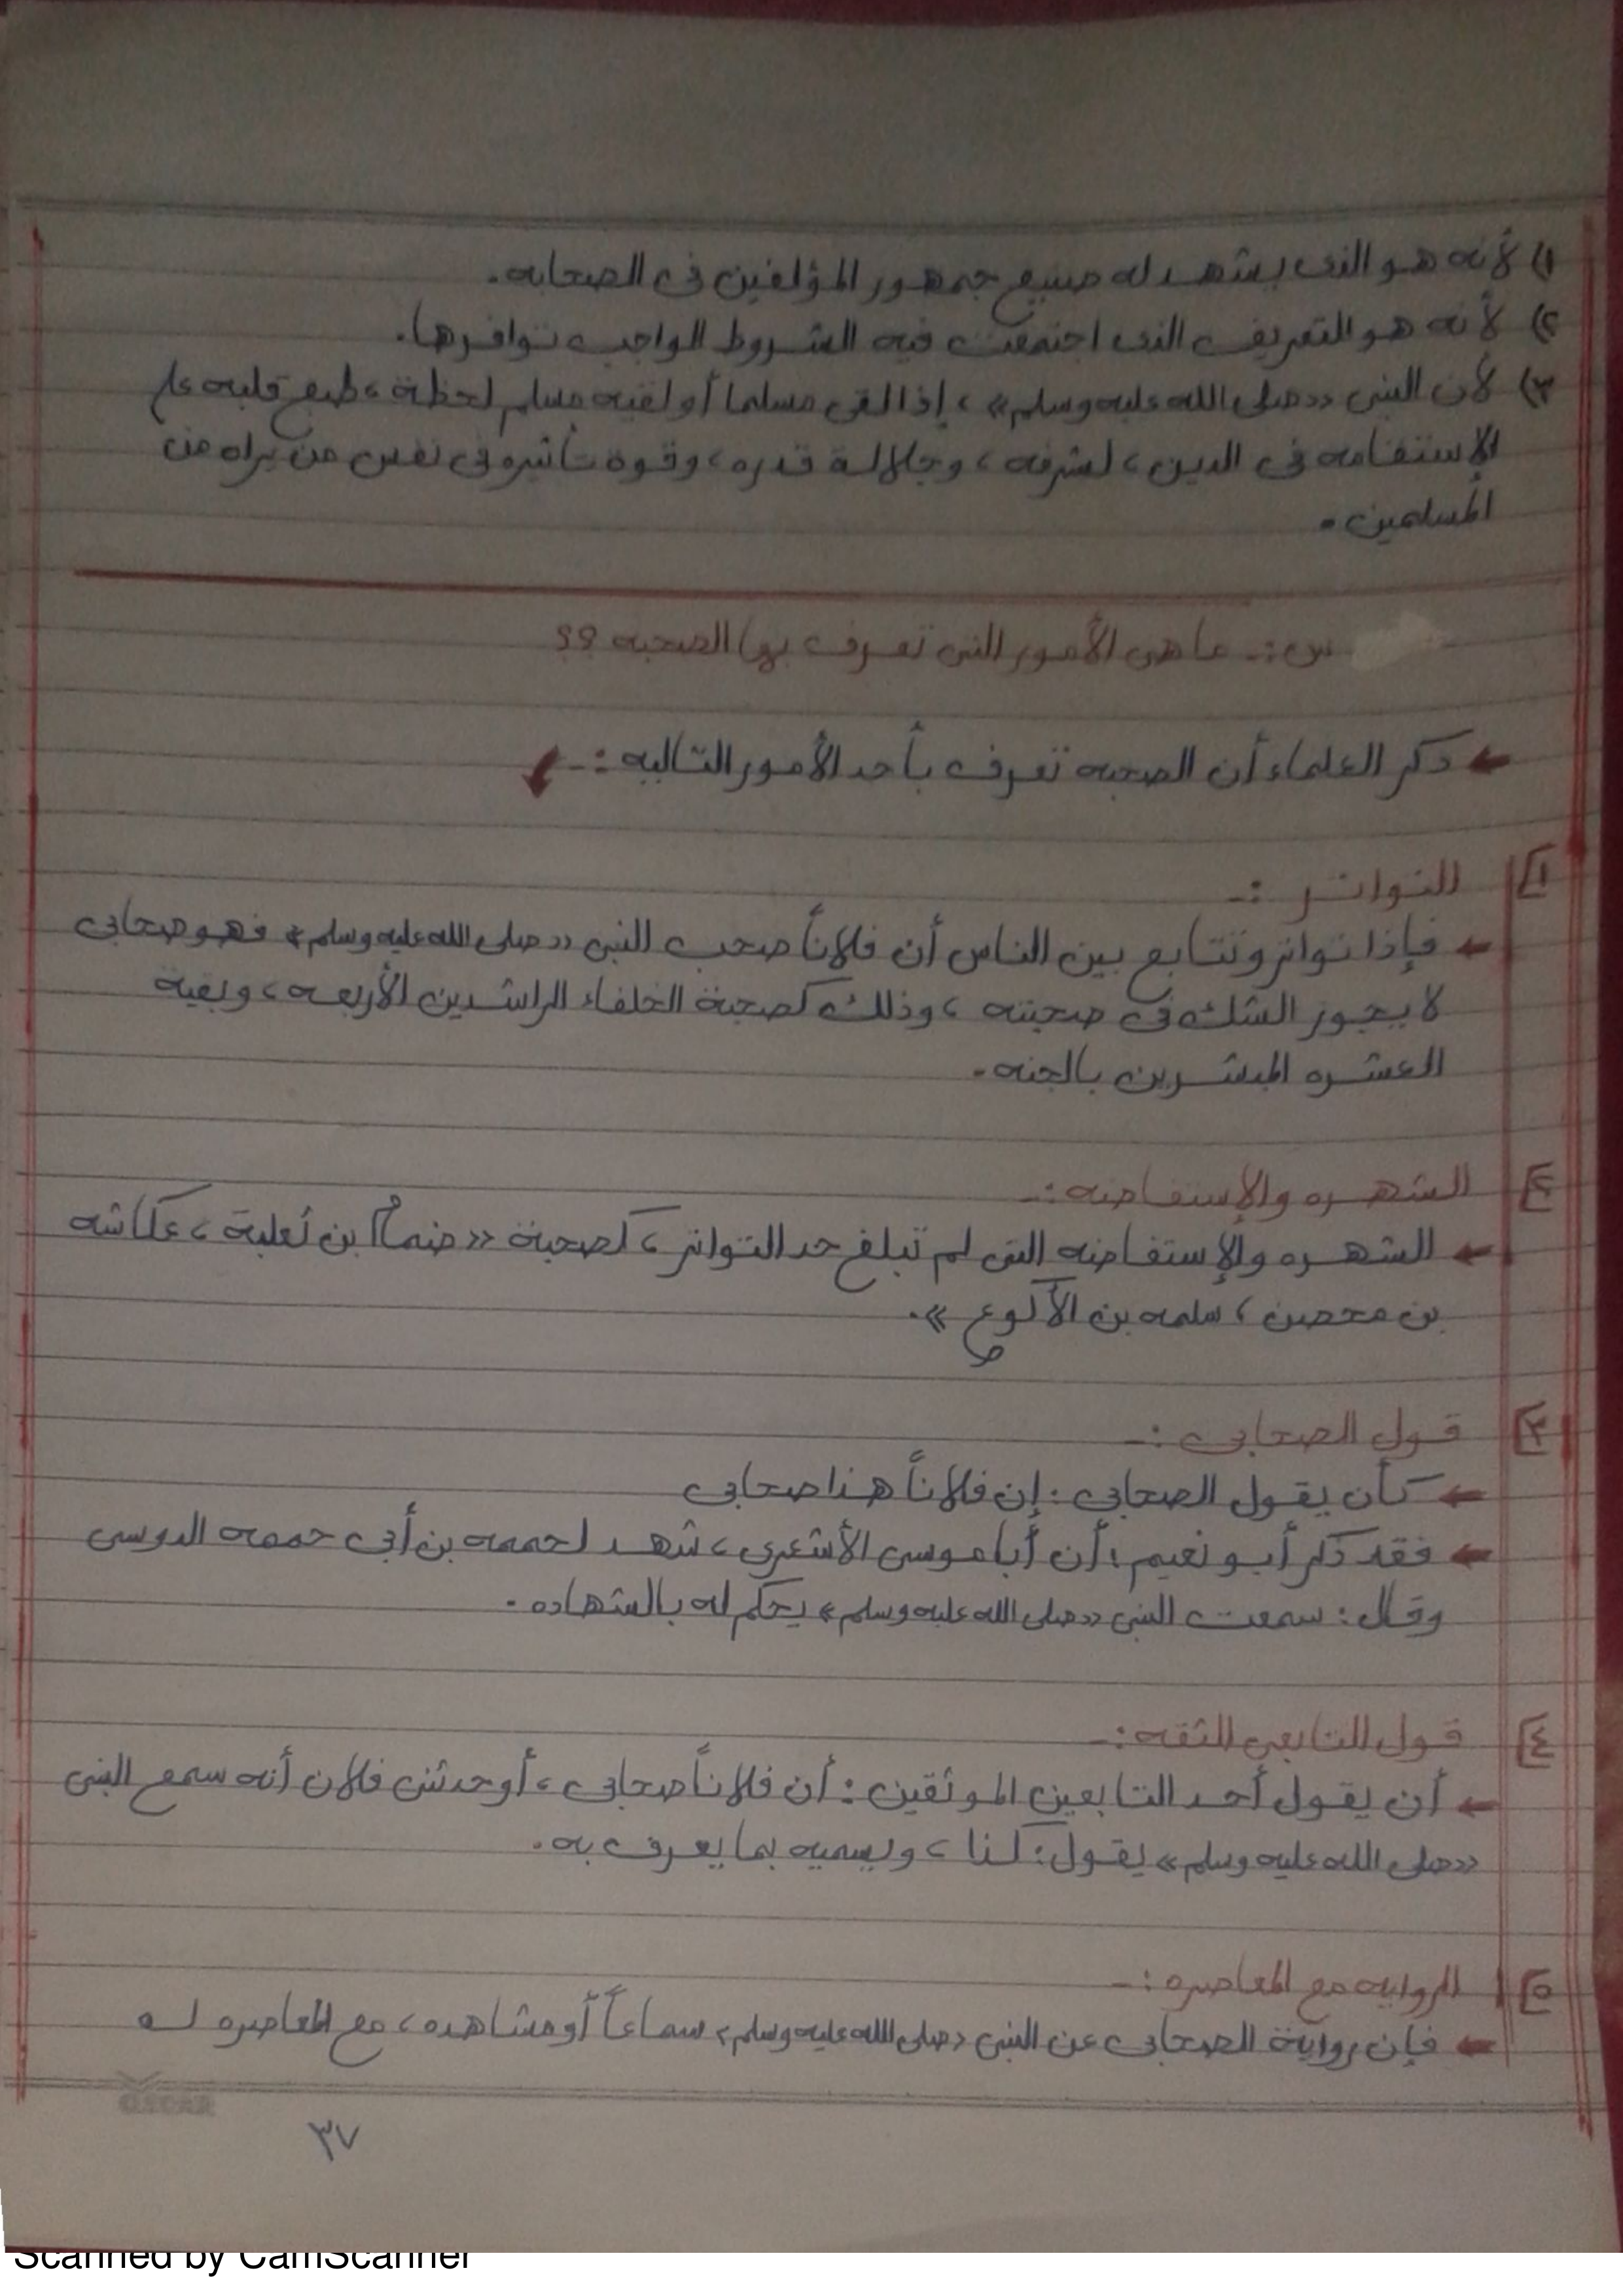 ١) لأنه هو الذى يشهد له صنيع جمهور المؤلفين فى الصحابه.
٢) لأنه هو التعريف الذى اجتمعت فيه الشروط الواجب توافرها.
٣) لأن النبى «صلى الله عليه وسلم»، إذا لقى مسلما أو لقيه مسلم لحظة، طبع قلبه على
الإستقامه فى الدين، لشرفه، وجلالة قدره، وقوة تأثيره فى نفس من يراه من
المسلمين.
س:- ما هى الأمور التى تعرف بها الصحبه ؟؟
← ذكر العلماء أن الصحبه تعرف بأحد الأمور التاليه :- ↙
١] التواتر :-
← فإذا تواتر وتتابع بين الناس أن فلاناً صحب النبى «صلى الله عليه وسلم» فهو صحابى
لا يجوز الشك فى صحبته، وذلك كصحبة الخلفاء الراشدين الأربعه، وبقية
العشره المبشرين بالجنه.
٢] الشهره والإستفاضه:-
← الشهره والإستفاضه التى لم تبلغ حد التواتر، كصحبة «ضمام بن ثعلبة، عكاشه
بن محصن، سلمه بن الأكوع».
٣] قول الصحابى :-
← كأن يقول الصحابى : إن فلاناً هذا صحابى
← فقد ذكر أبو نعيم، أن أبا موسى الأشعرى، شهد لحممه بن أبى حممه الدوسى
وقال: سمعت النبى «صلى الله عليه وسلم» يحكم له بالشهاده.
٤] قول التابعى الثقه:-
← أن يقول أحد التابعين الموثقين : أن فلاناً صحابى، أو حدثنى فلان أنه سمع النبى
«صلى الله عليه وسلم» يقول: كذا، ويسميه بما يعرف به.
٥] الروايه مع المعاصره :-
← فإن رواية الصحابى عن النبى «صلى الله عليه وسلم» سماعاً أو مشاهده، مع المعاصره له
OSCAR
٣٧
Scanned by CamScanner